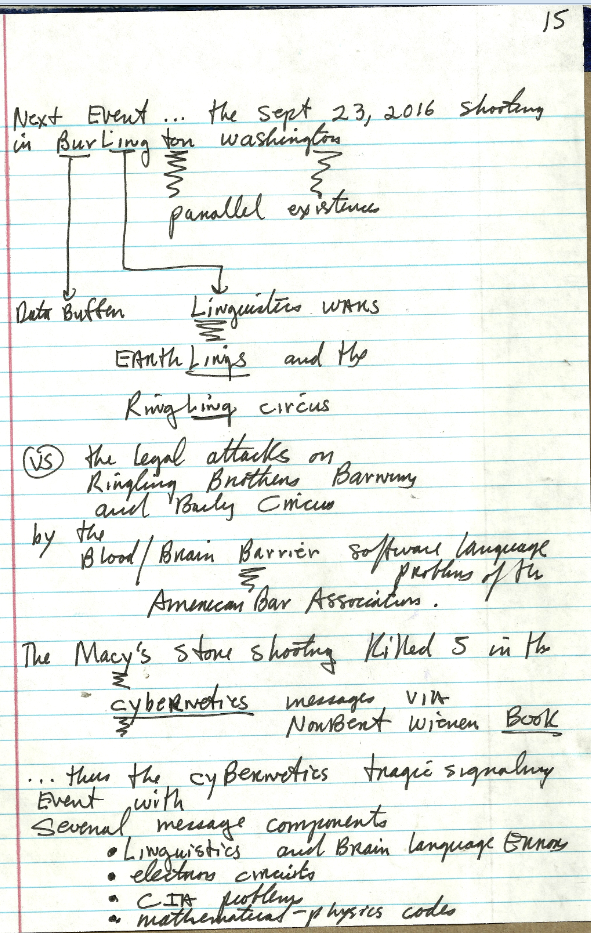 15
Next Event ... the Sept 23, 2016 shooting
in BurLing ton washington
parallel existences
Data Buffer Linguistics WARS
EARth Lings and the
RingLing circus
(VS) the legal attacks on
Ringling Brothers Barnum
and Baily Circus
by the
Blood/Brain Barrier software language
problems of the
American Bar Association.
The Macy's store shooting killed 5 in the
cybernetics messages VIA
NorBert Wiener Book
... thus the cyBernetics tragic signaling
Event with
Several message components
• Linguistics and Brain language Errors
• electron circuits
• CIA problems
• mathematical-physics codes